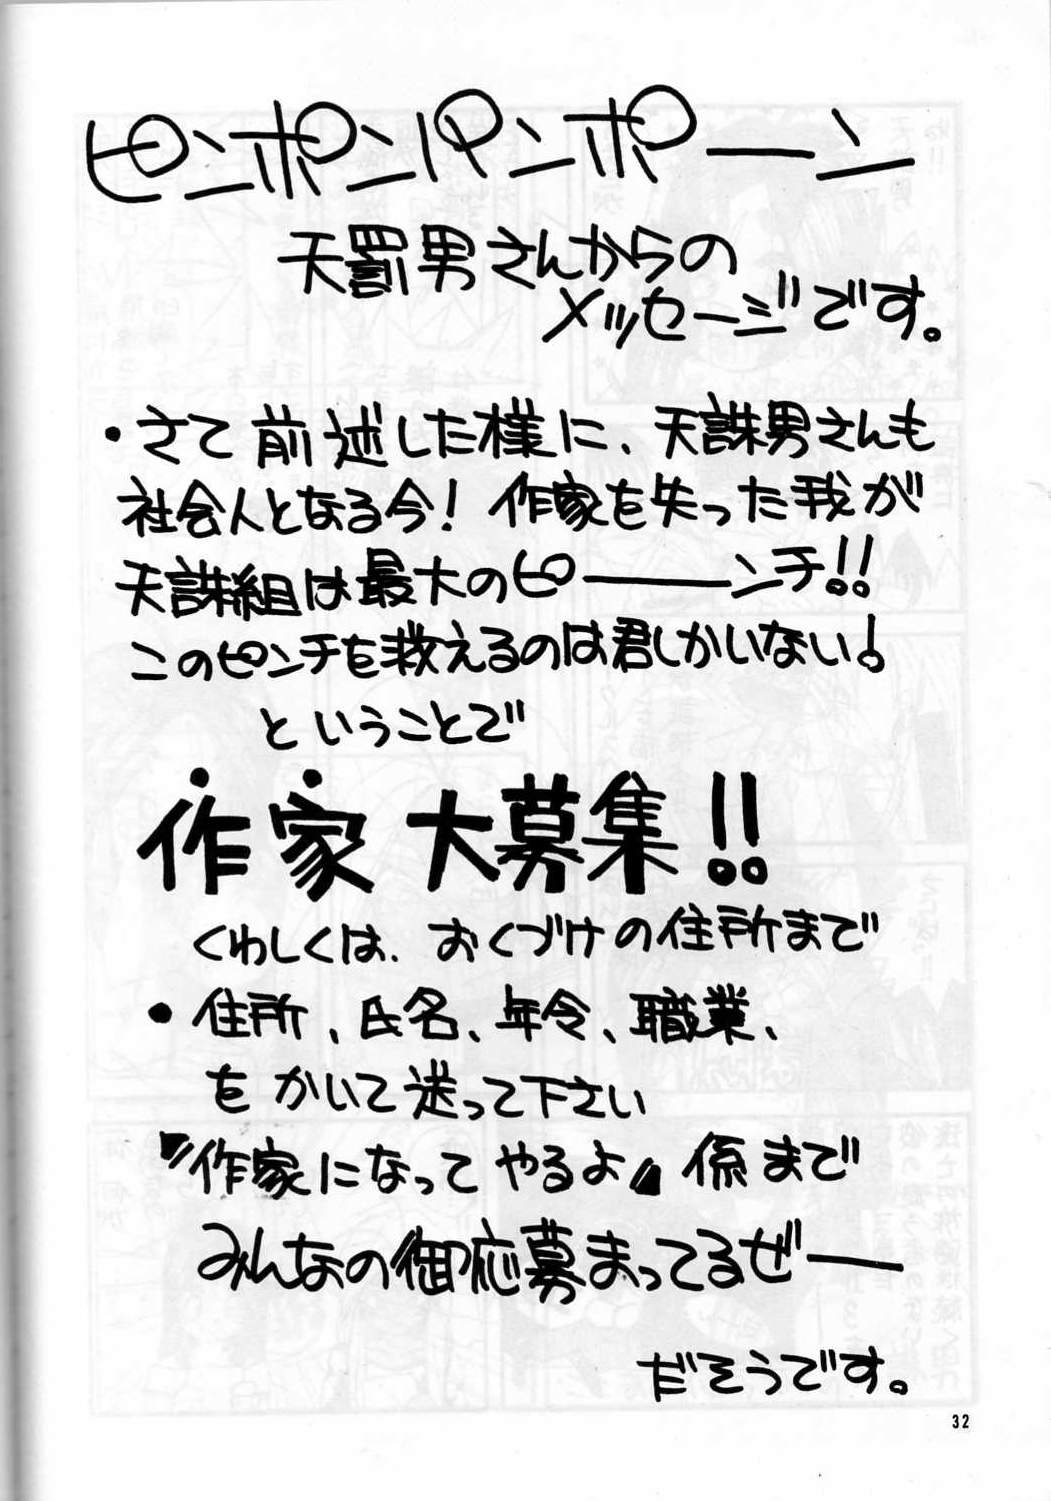 ピンポンパンポーン
天罰男さんからの
メッセージです。
・さて前述した様に、天誅男さんも
社会人となる今！作家を失った我が
天誅組は最大のピーーンチ!!
このピンチを救えるのは君しかいない！
ということで
作家大募集!!
くわしくは、おくづけの住所まで
・住所、氏名、年令、職業、
をかいて送って下さい
〝作家になってやるよ〟係まで
みんなの御応募まってるぜー
だそうです。
32